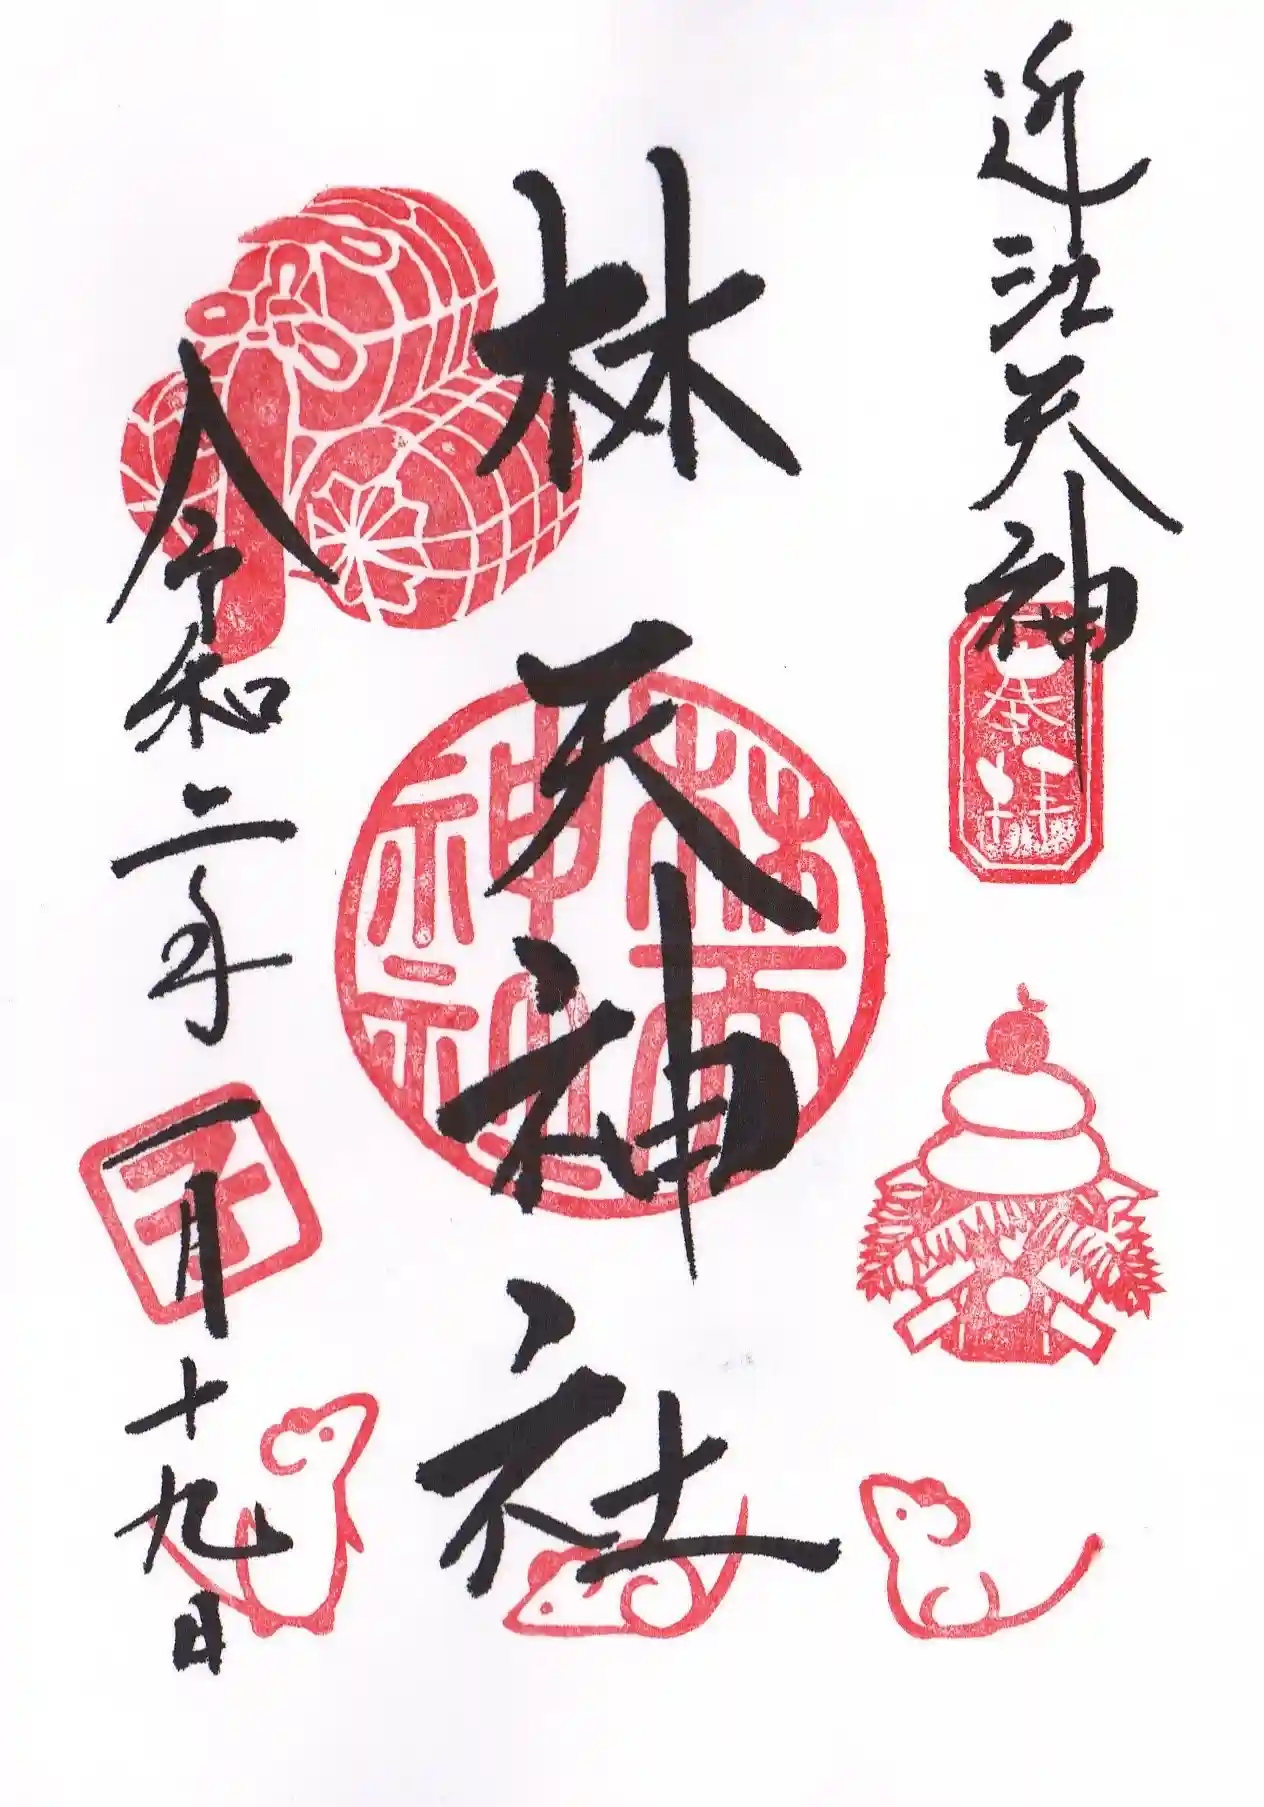 近江天神
奉拝
林天神社
林天神社
令和二年一月十九日
子